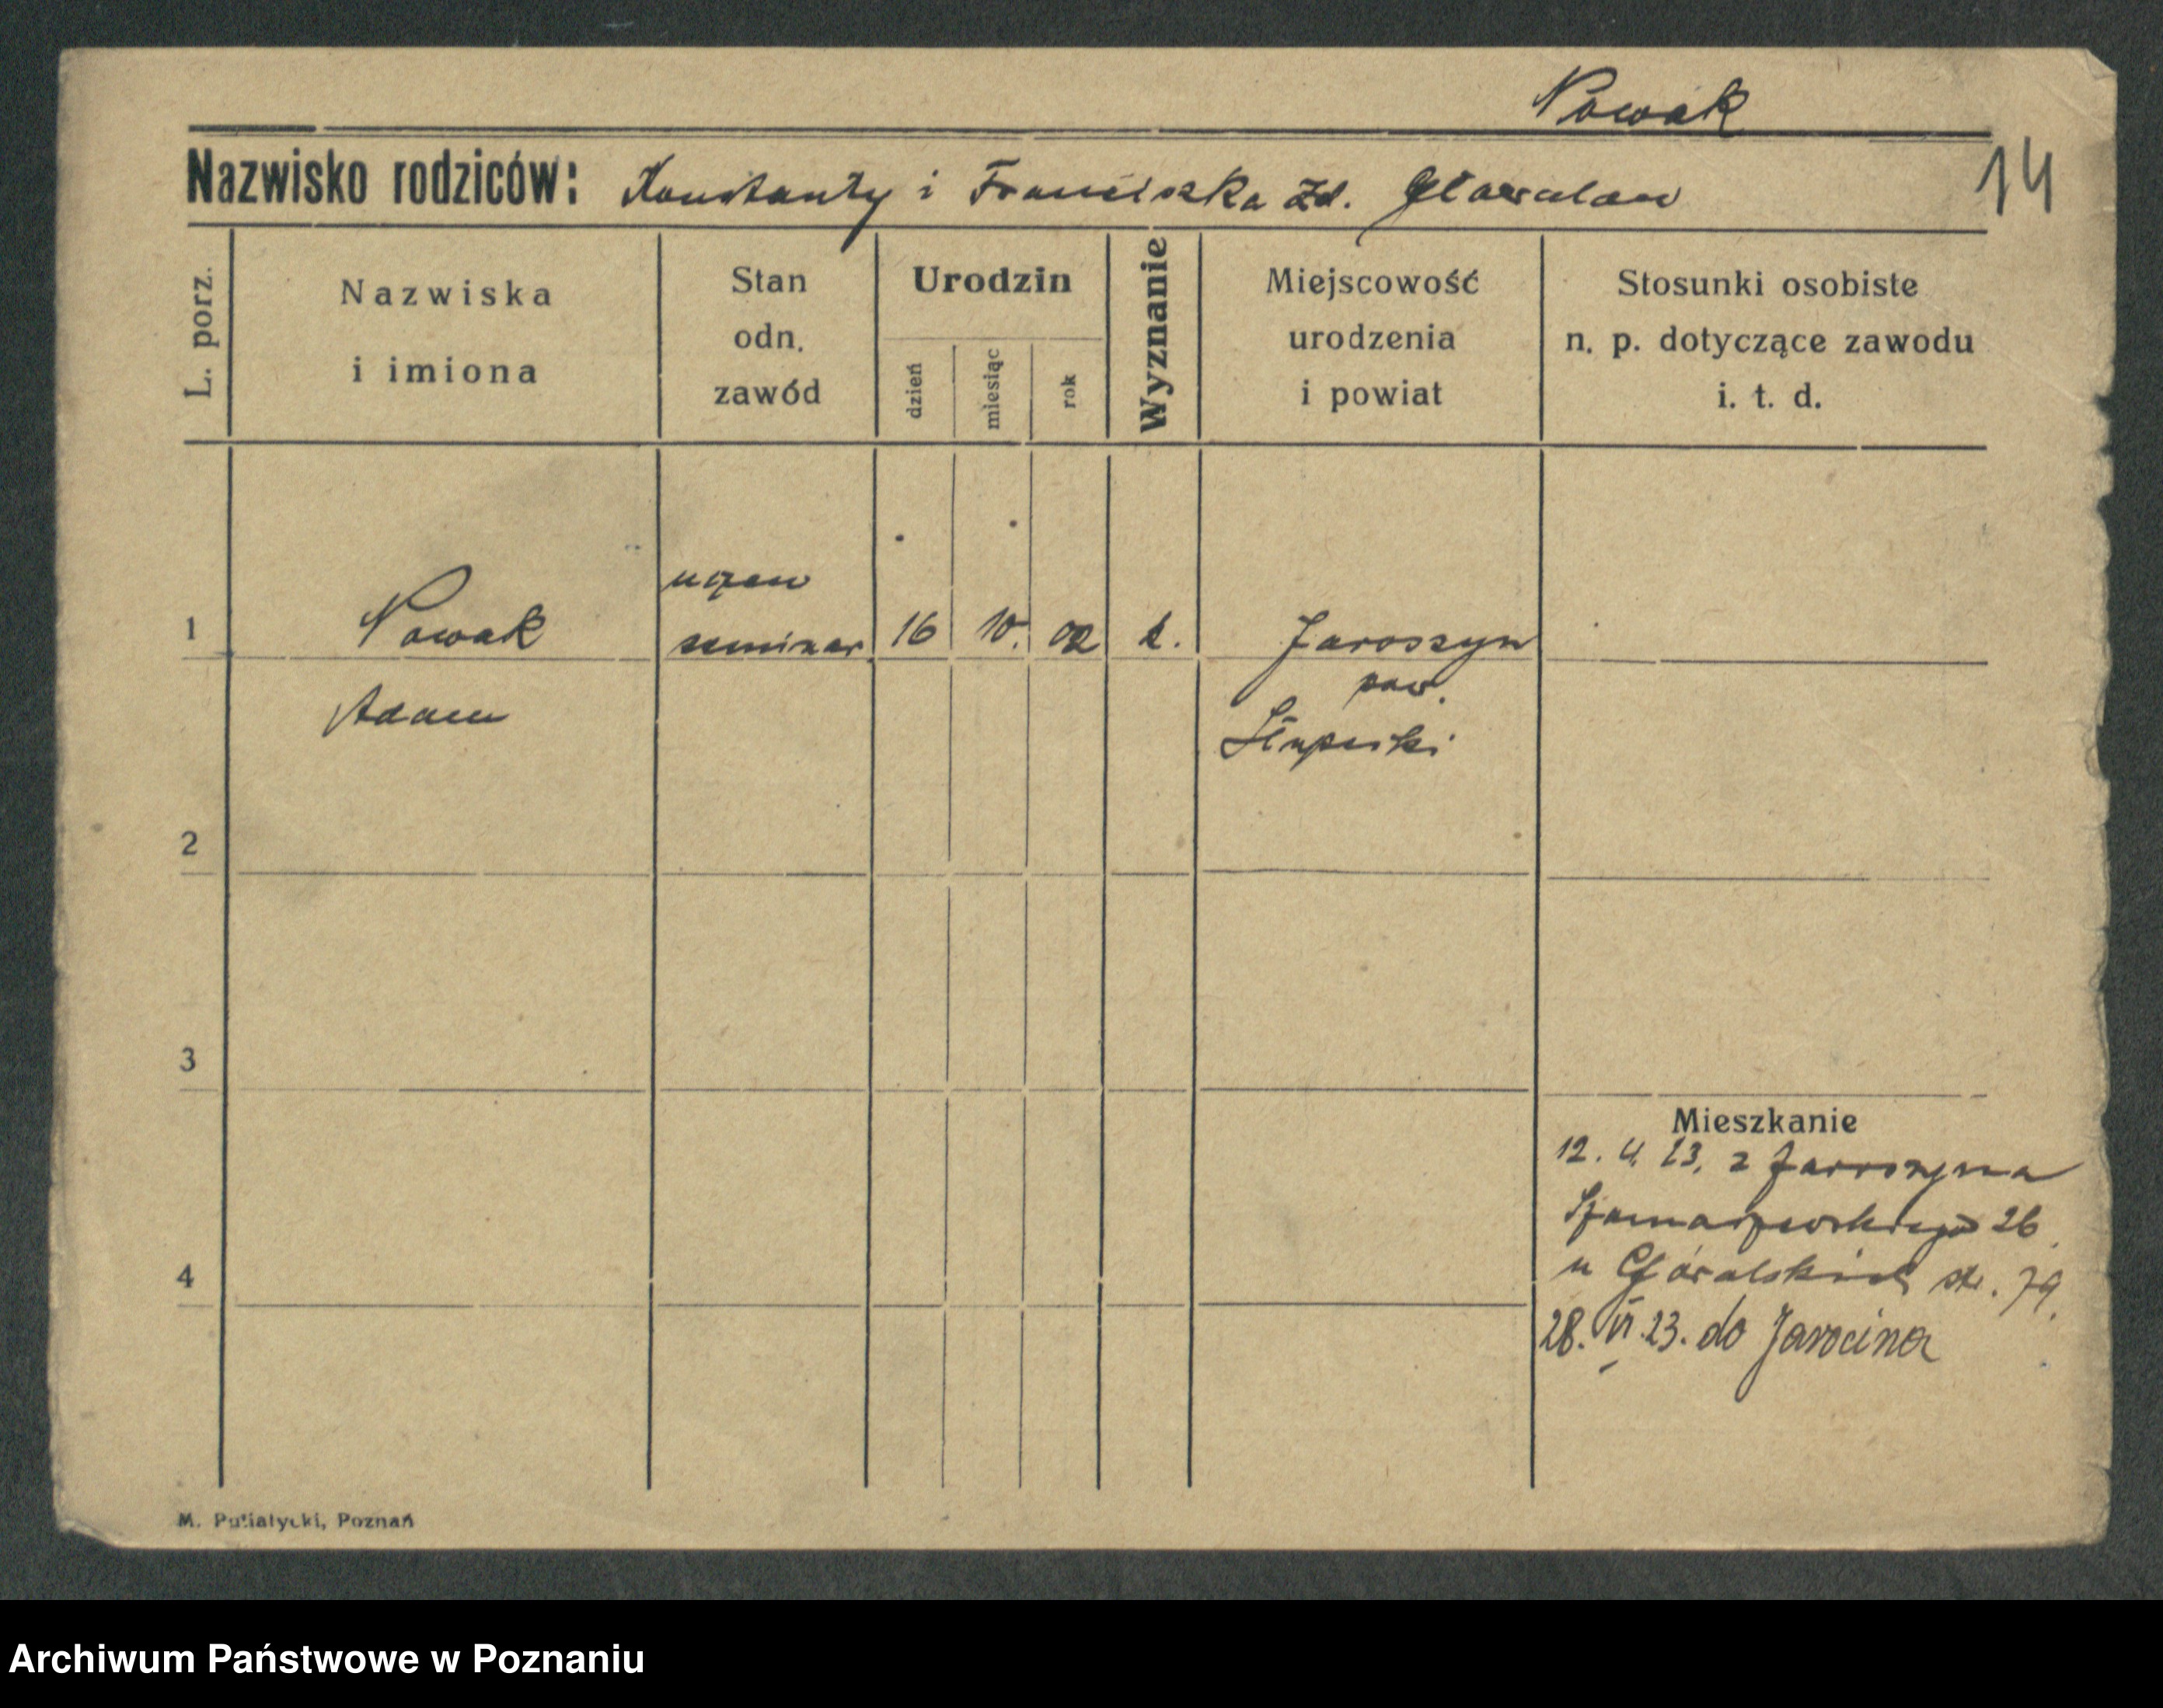 Nowak
Nazwisko rodziców: Konstanty i Franciszka zd.
14
L. porz.
Nazwiska
i imiona
Stan
odn.
zawód
Urodzin
dzień
miesiąc
rok
Wyznanie
Miejscowość
urodzenia
i powiat
Stosunki osobiste
n. p. dotyczące zawodu
i. t. d.
1
Nowak
Adam
uczen
seminar.
16
10.
02
k.
Jaroszyn
pow.
Słupecki
2
3
4
Mieszkanie
12. 4. 23. z Jaroszyna
Szamarzewskiego 26
u Góralskich str. 79.
28. VI. 23. do Jarocina
M. Putiatycki, Poznań
Archiwum Państwowe w Poznaniu